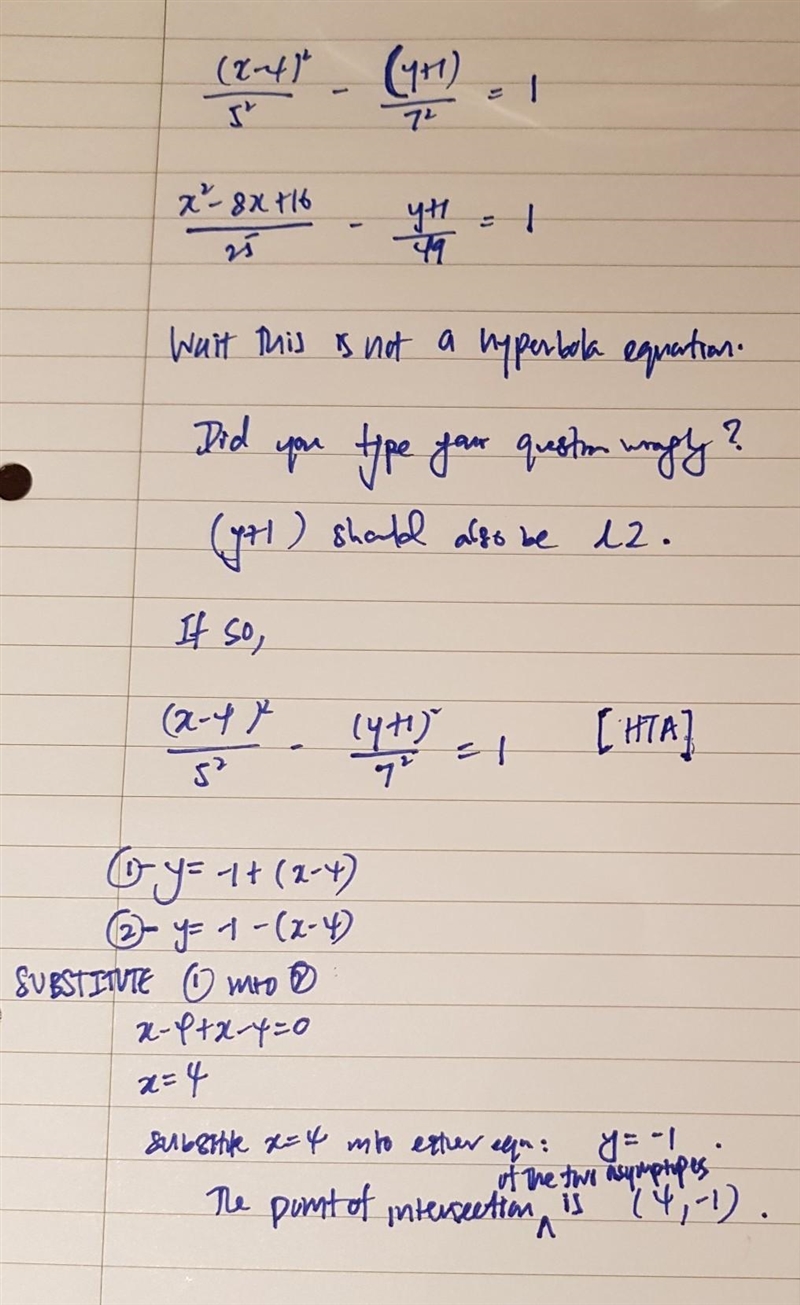 (x-4)² / 5² - (y+1) / 7² = 1
x²-8x+16 / 25 - y+1 / 49 = 1
Wait this is not a hyperbola equation.
Did you type your question wrongly?
(y+1) should also be ^2.
If so,
(x-4)² / 5² - (y+1)² / 7² = 1 [HTA]
①- y= -1+(x-4)
②- y= -1-(x-4)
SUBSTITUTE ① into ②
x-4+x-4=0
x=4
substitute x=4 into either eqn: y=-1.
of the two asymptopes
The point of intersection ^ is (4,-1).